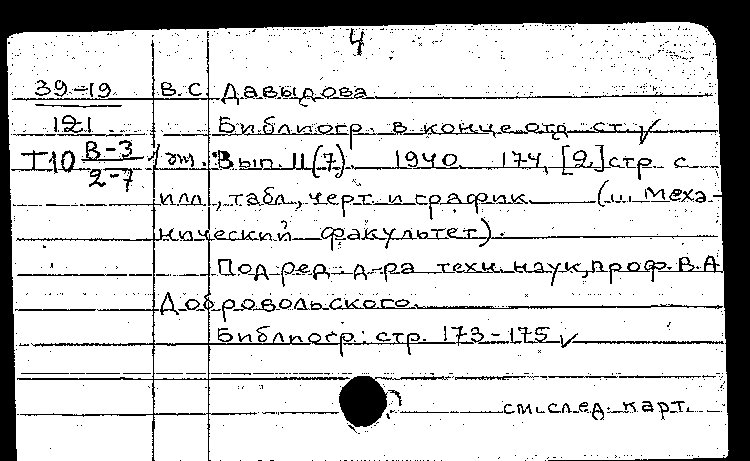 4
39-19 В.С. Давыдова
121 Библиогр. в конце отд. ст. ✓
Т10 В-3/2-7 1 эт. Вып. II(7). 1940. 174, [2] стр. с
илл., табл., черт. и график. (ш. Меха-
нический факультет).
Под ред. д-ра техн. наук, проф. В.А
Добровольского.
Библиогр: стр. 173-175 ✓
см. след. карт.